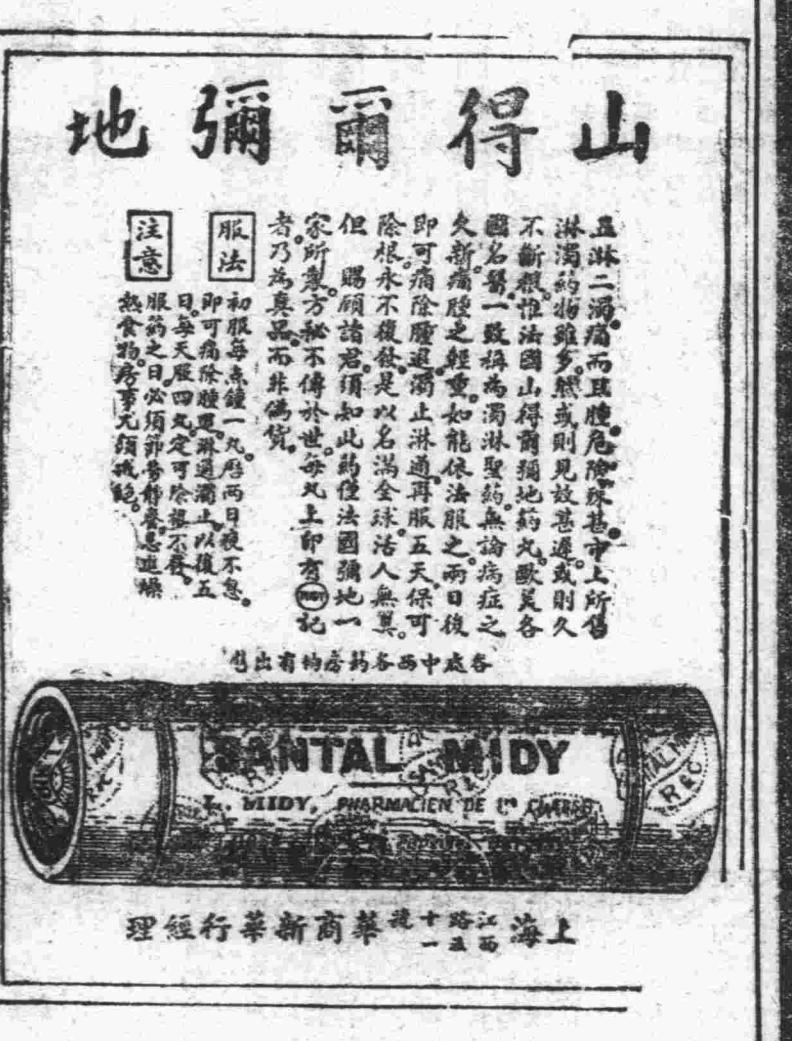 山得爾彌地
且淋二濁。痛而且腫。危險殊甚。市上所售
淋濁葯物雖多。然或則見效甚遲。或則久
不斷根。惟法國山得爾彌地葯丸。歐美各
國名醫。一致稱為濁淋聖葯。無論病症之
久新。痛腫之輕重。如能依法服之。兩日後
即可痛除腫退。濁止淋通。再服五天。保可
除根。永不復發。是以名滿全球。活人無算。
但 賜顧諸君。須知此葯僅法國彌地一
家所製。方秘不傳於世。每丸上印有MIDY記
者。乃為真品。而非偽貨。
服法
初服每點鐘一丸。曆兩日夜不息。
即可痛除腫退。淋通濁止。以後五
日。每天服四丸。定可除根不發。
注意
服葯之日。必須節勞靜養。忌進燥
熱食物。房事尤須戒絕。
各處中西各葯房均有出售
SANTAL MIDY
L. MIDY, PHARMACIEN DE 1re CLASSE
R&C
上海江西路五十一號華商新華行經理